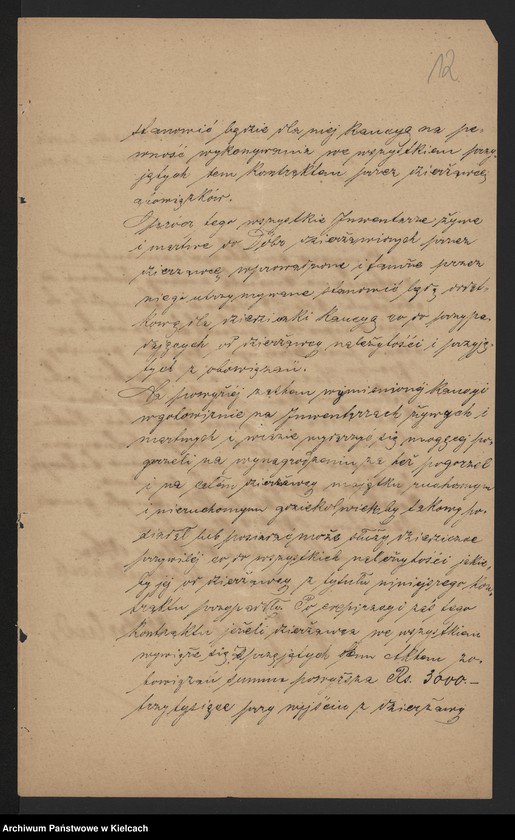 12
stanowić będzie dla niej kaucyą na pe-
wność wykonywania we wszystkiem przy-
jętych tem kontraktem przez dzierżawcę
obowiązków.
Oprócz tego wszystkie Inwentarze żywe
i martwe do Dóbr dzierżawionych przez
dzierżawcę wprowadzone i tamże przez
niego utrzymywane stanowić będą dodat-
kową dla dziedziczki kaucyą co do przypa-
dających od dzierżawcy należytości i przyję-
tych zobowiązań.
Na powyżej zatem wymienionej kaucyi
w gotowiźnie na Inwentarzach żywych i
martwych i wreszcie wydarzyć się mogącej po-
gorzeli na wynagrodzeniu za też pogorzel
i na całym dzierżawcy majątku ruchomym
i nieruchomym gdziekolwiek by takowy po-
siadał lub posiadać może służy dziedziczce
przywilej co do wszystkich należytości jakie
by jej od dzierżawcy z tytułu niniejszego kon-
traktu przypadły. Po expiracyi zaś tego
kontraktu jeżeli dzierżawca we wszystkiem
wywiąże się z przyjętych tym Aktem zo-
bowiązań summa powyższa Rs. 3000.–
trzy tysiące przy wyjściu z dzierżawy
Archiwum Państwowe w Kielcach